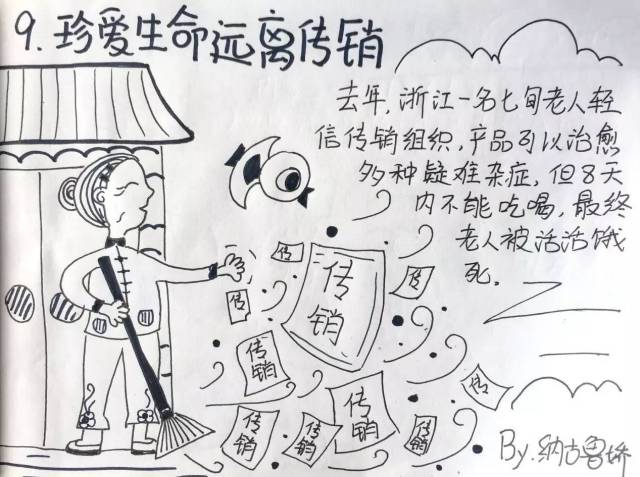 9.珍爱生命远离传销
去年,浙江一名七旬老人轻
信传销组织,产品可以治愈
多种疑难杂症,但8天
内不能吃喝,最终
老人被活活饿
死.
传
传
传销
传
传销
传销
传
传销
传销
传销
By.纳古鲁娇